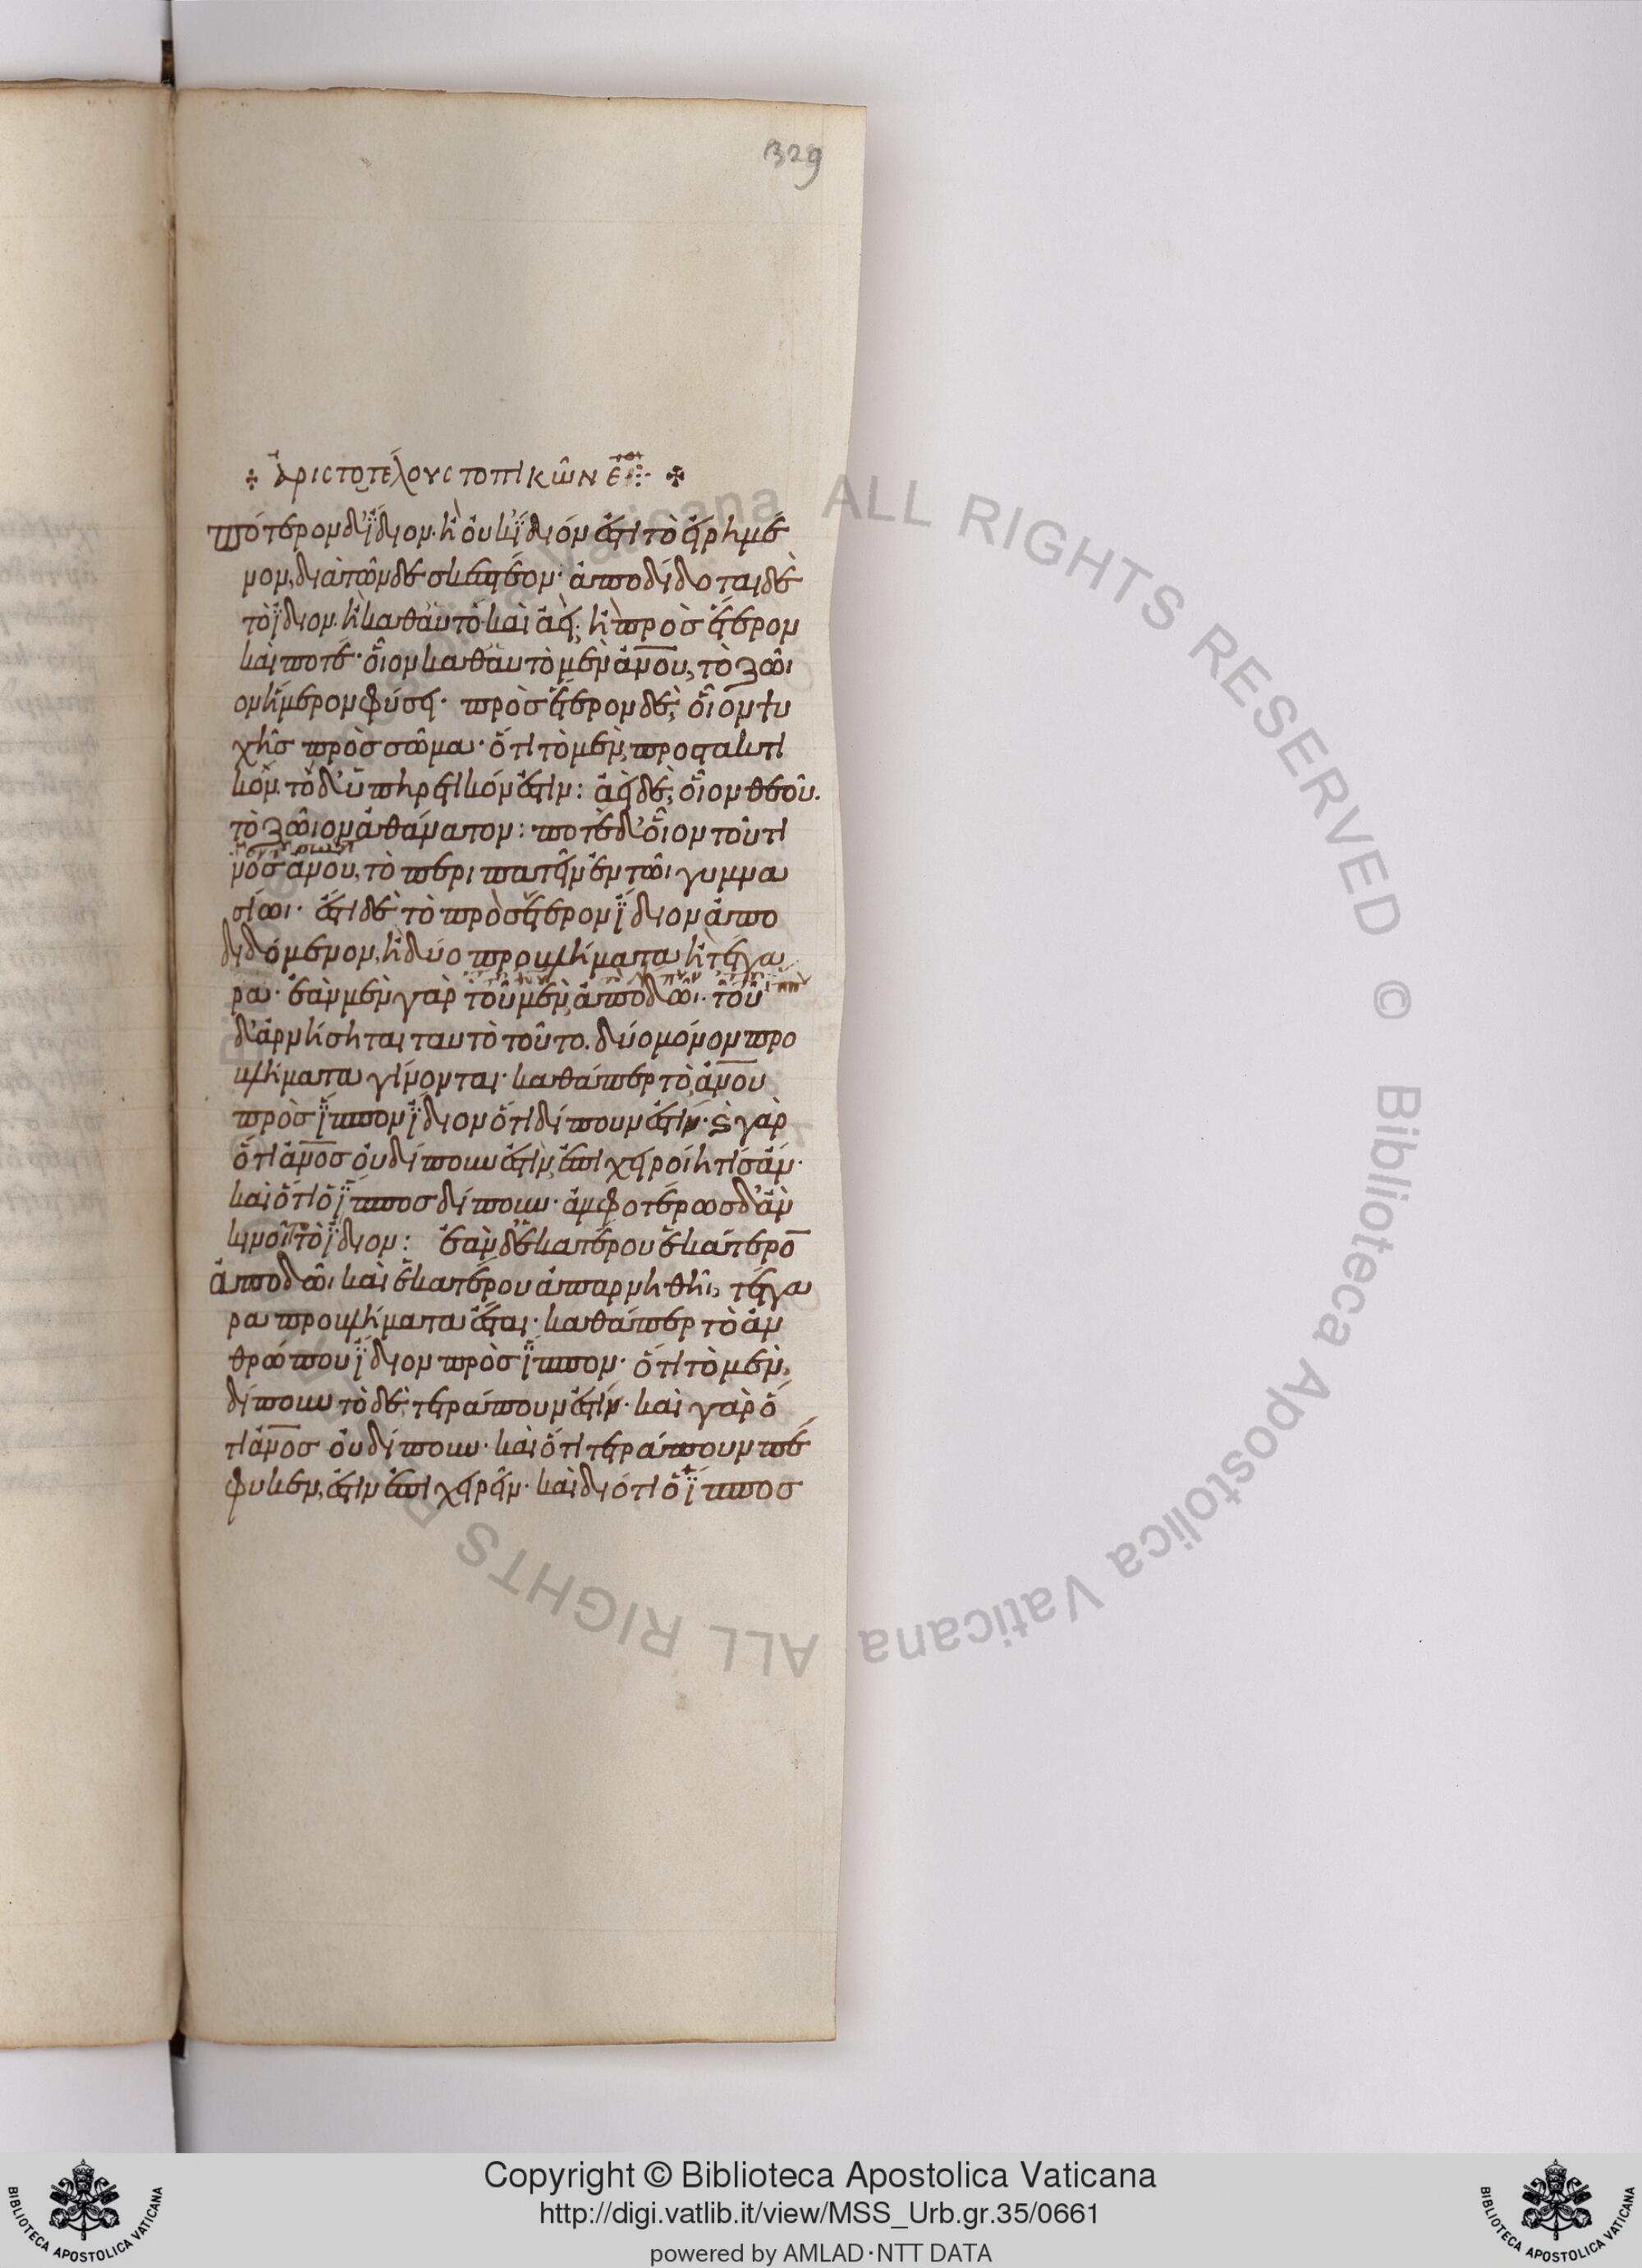 329
Ἀριστοτέλους τοπικῶν ε
πότερον δ' ἴδιον ἢ οὐκ ἴδιόν ἐστι τὸ εἰρημέ
νον, διὰ τῶνδε σκεπτέον· ἀποδίδοται δὲ
τὸ ἴδιον ἢ καθ' αὑτὸ καὶ ἀεὶ, ἢ πρὸς ἕτερον
καὶ ποτέ· οἷον καθ' αὑτὸ μὲν ἀνου, τὸ ζῶι
ον ἥμερον φύσει· πρὸς ἕτερον δὲ, οἷον ψυ
χῆς πρὸς σῶμα· ὅτι τὸ μὲν προστακτι
κόν, τὸ δ' ὑπηρετικόν ἐστιν: ἀεὶ δὲ, οἷον θεοῦ.
τὸ ζῶιον ἀθάνατον: ποτὲ δ' οἷον τοῦ τι
νὸς ἀνου, τὸ περιπατεῖν ἐν τῶι γυμνα
σίωι· ἔστι δὲ τὸ πρὸς ἕτερον ἴδιον ἀπο
διδόμενον, ἢ δύο προβλήματα ἢ τέττα
ρα· ἐὰν μὲν γὰρ τοῦ μὲν ἀποδῶι. τοῦ
δ' ἀρνήσηται ταυτὸ τοῦτο. δύο μόνον προ
βλήματα γίνονται· καθάπερ τὸ ἀνου
πρὸς ἵππον ἴδιον ὅτι δίπουν ἐστίν· καὶ γὰρ
ὅτι ἀνος οὐ δίπουν ἐστὶν, ἐπιχειροίη τις ἄν·
καὶ ὅτι ὁ ἵππος δίπουν· ἀμφοτέρως δ' ἂν
κινοῖ τὸ ἴδιον: ἐὰν δ' ἑκατέρου ἑκάτερο
ἀποδῶι καὶ ἑκατέρου ἀπαρνηθῆι, τέττα
ρα προβλήματα ἔσται· καθάπερ τὸ ἀν
θρώπου ἴδιον πρὸς ἵππον· ὅτι τὸ μὲν
δίπουν τὸ δὲ τετράπουν ἐστίν· καὶ γὰρ ὅ
τι ἀνος οὐ δίπουν· καὶ ὅτι τετράπουν πέ
φυκεν, ἔστιν ἐπιχειρεῖν· καὶ διότι ὁ ἵππος
Copyright © Biblioteca Apostolica Vaticana
http://digi.vatlib.it/view/MSS_Urb.gr.35/0661
powered by AMLAD·NTT DATA
BIBLIOTECA APOSTOLICA VATICANA
BIBLIOTECA APOSTOLICA VATICANA
ALL RIGHTS RESERVED © Biblioteca Apostolica Vaticana